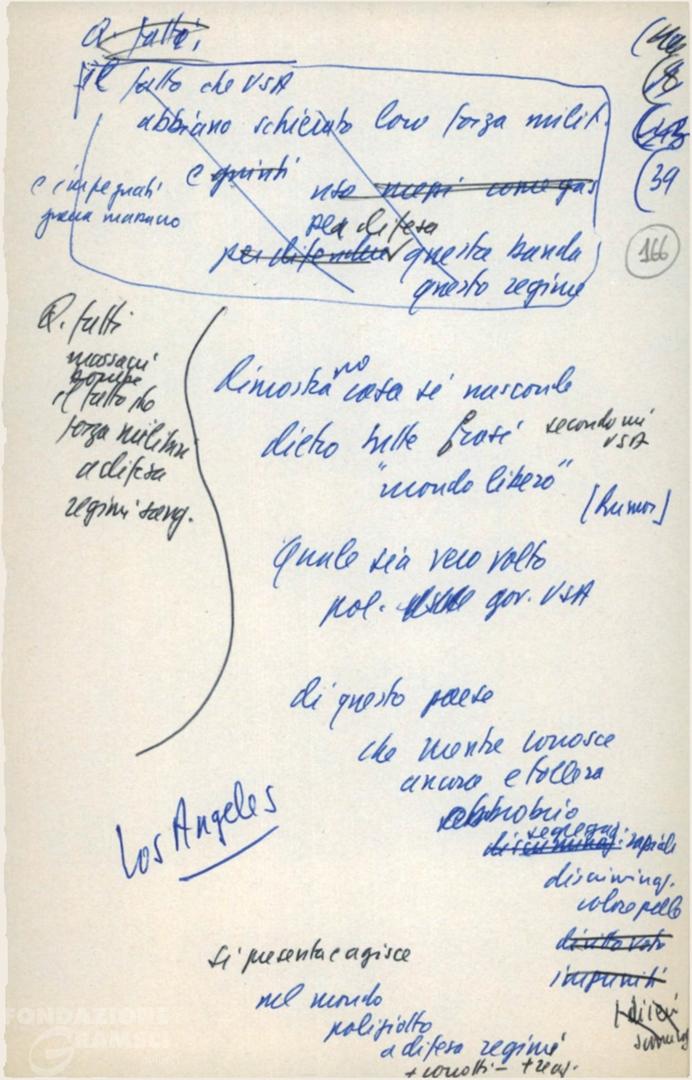 Q. fatti,
Il fatto che USA
abbiano schierato loro forza milit.
e quindi
e impegnati
uso mezzi come gas
per difesa
per difendere questa banda
questo regime
(39
166
Q. fatti
massacri
il fatto che
forza militare
a difesa
regimi sang.
Dimostrano cosa si nasconde
dietro belle frasi secondo cui
USA
"mondo libero"
[Rumor]
Quale sia vero volto
pol. gov. USA
di questo paese
che mentre conosce
ancora e tollera
obbrobrio
segregaz.
discriminaz. razziale
discriminaz.
colore pelle
diritto voto
impuniti
Los Angeles
si presenta e agisce
nel mondo
poliziotto
a difesa regimi
+ corrotti - + reaz.
FONDAZIONE
GRAMSCI